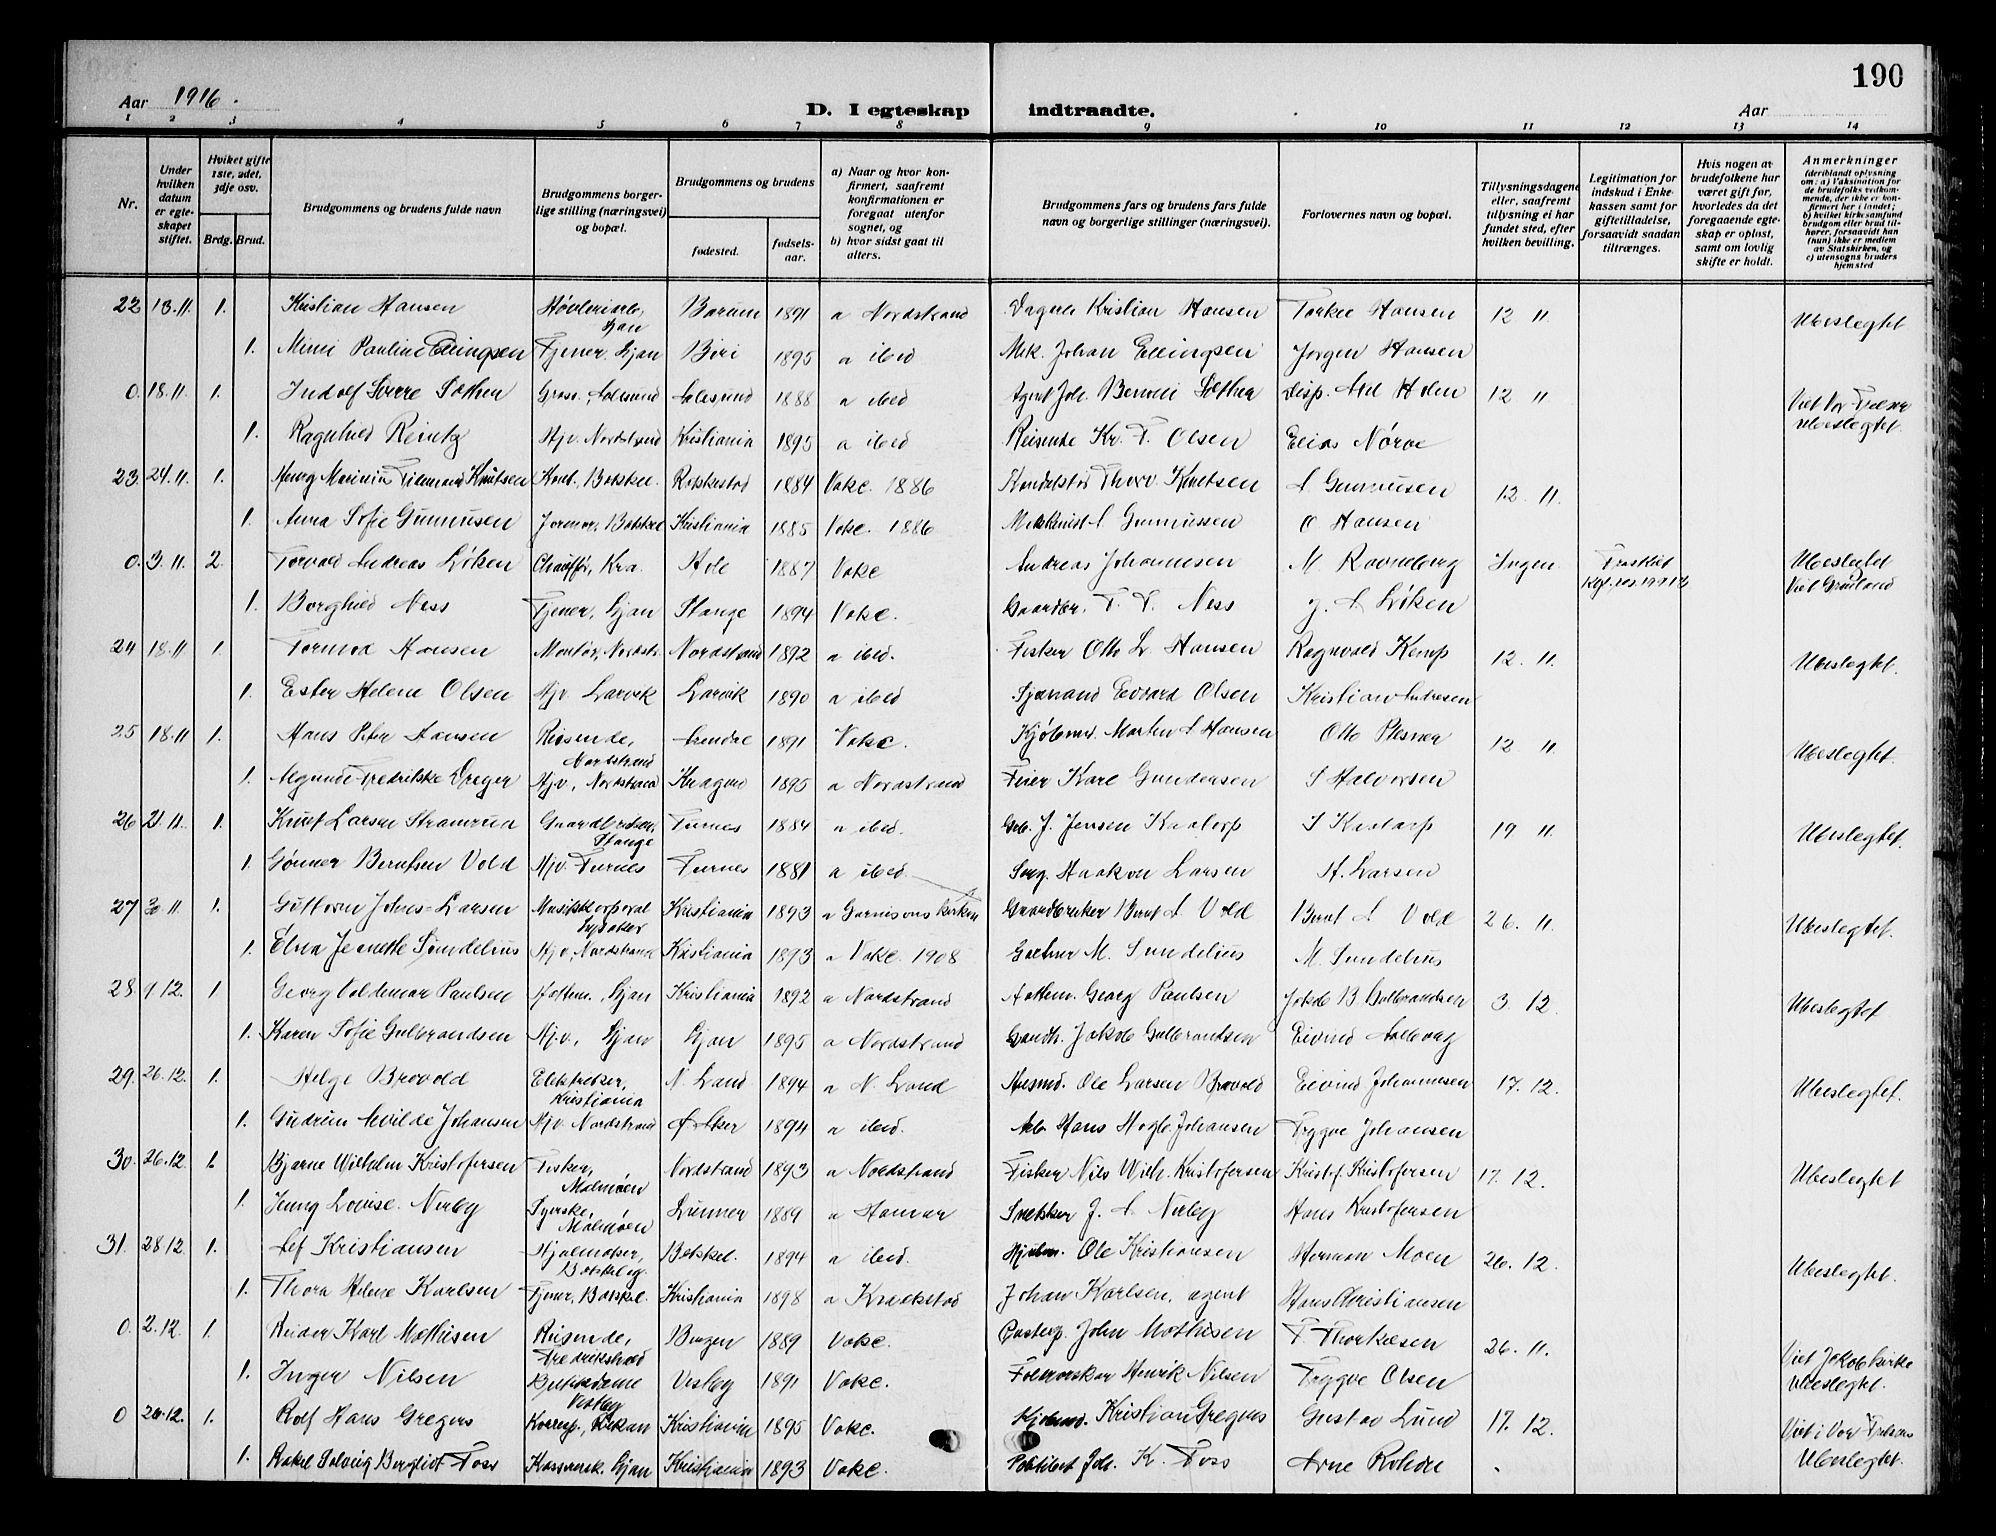 190
Aar 1916.
D. I egteskap indtraadte.
Aar
1 2 3 4 5 6 7 8 9 10 11 12 13 14
Nr.
Under hvilken datum er egteskapet stiftet.
Hvilket gifte 1ste, 2det, 3dje osv.
Brdg. Brud.
Brudgommens og brudens fulde navn
Brudgommens borgerlige stilling (næringsvei) og bopæl.
Brudgommens og brudens
fødested.
fødselsaar.
a) Naar og hvor konfirmert, saafremt konfirmationen er foregaat utenfor sognet, og
b) hvor sidst gaat til alters.
Brudgommens fars og brudens fars fulde navn og borgerlige stillinger (næringsvei).
Forlovernes navn og bopæl.
Tillysningsdagene eller, saafremt tillysning ei har fundet sted, efter hvilken bevilling.
Legitimation for indskud i Enkekassen samt for giftetilladelse, forsaavidt saadan tiltrænges.
Hvis nogen av brudefolkene har været gift før, hvorledes da det foregaaende egteskap er opløst, samt om lovlig skifte er holdt.
Anmerkninger (deriblandt oplysning om: a) Vaksination for de brudefolks vedkommende, der ikke er konfirmert her i landet; b) hvilket kirkesamfund brudgom eller brud tilhører, forsaavidt han (hun) ikke er medlem av Statskirken, og c) utensogns bruders hjemsted
22 18.11. 1. Kristian Hansen Høvleriarb., Ljan Bærum 1891 a Nordstrand Kristian Hansen Hansen 12 11 Ubeslegtet
1. Mimi Pauline Ellingsen Tjener, Ljan Biri 1895 a ibid Mek. Johan Ellingsen Jørgen Hansen
0. 18.11. 1. Sverre Aalesund Aalesund 1888 a ibid Agent Joh. 12 11 Viet Vor Frelser Ubeslegtet.
1. Ragnhild Reintz Hjv. Nordstrand Kristiania 1895 a ibid Reisende Kr. F. Olsen Elias Nørve
23. 24.11. 1. Knutsen Kont., Bækkel. Rakkestad 1884 Vake. 1886 Knutsen A Gunnusen 12. 11.
1. Anna Sofie Gunnusen Bækkel Kristiania 1885 Vake. 1886 A Gunnussen O Hansen
0. 3.11. 2. Torvald Andreas Løken Chauffør, Kra. Hole 1887 Vake Andreas Johannesen M Ravneberg Ingen Fraskilt Ubeslegtet Viet Grønland
1. Borghild Ness Tjener, Ljan Stange 1894 Vake. Gaardbr. T. T. Ness J. A Løken
24 18.11 1. Tormod Hansen Montør, Nordstr. Nordstrand 1892 a ibid. Fisker Otto L. Hansen Ragnvald Kemp 12. 11. Ubeslegtet.
1. Ester Helene Olsen Hjv. Larvik Larvik 1890 a ibid Sjømand Edvard Olsen Kristian Andresen
25 18.11 1. Hans Peter Hansen Reisende, Nordstrand Arendal 1891 Vake. Kjøbmd. Morten A Hansen Otto Plesner 12 11 Ubeslegtet.
1. Fredrikke Dreyer Hjv., Nordstrand Kragerø 1895 a Nordstrand Feier Karl Gundersen S Halvorsen
26 21.11. 1. Knut Larsen Gaardbruker, Stange Furnes 1884 a ibid. J. Jensen 19 11. Ubeslegtet.
1. Gunner Berntsen Vold Hjv. Furnes Furnes 1881 a ibid. Haakon Larsen H. Larsen
27 30.11. 1. Guttorm Larsen Musikkorporal Kristiania 1893 a Garnisons kirken Gaardbruker Bernt A Vold Bernt A Vold 26. 11. Ubeslegtet.
1. Elna Jeanette Sundelius Hjv., Nordstrand Kristiania 1893 a Vake. 1908 Gartner M. Sundelius M. Sundelius
28 9.12. 1 Georg Valdemar Paulsen Ljan Kristiania 1892 a Nordstrand Georg Paulsen Jakob B Gulbrandsen 3. 12. Ubeslegtet
1. Karen Sofie Gulbrandsen Hjv., Ljan Ljan 1895 a Nordstrand Jakob Gulbrantsen Eivind
29. 26.12. 1. Helge Brovold Elektriker, Kristiania N. Land 1894 a N. Land Ole Larsen Brovold Eivind Johannesen 17. 12. Ubeslegtet.
1. Gudrun Alvilde Johansen Hjv. Nordstrand Ø. Aker 1894 a ibid. Arb Hans Johansen Trygve Johansen
30. 26.12. 1. Bjarne Wilhelm Kristofersen Fisker, Malmøen Nordstrand 1893 a Nordstrand Fisker Nils Wilh. Kristofersen Kristof. Kristofersen 17. 12. Ubeslegtet
1. Jenny Lovise Syerske, Malmøen Lunner 1889 a Hamar Snekker J. A Hans Kristofersen
31. 28.12. 1. Alf Kristiansen Hjulmaker, Bækkelag. Bækkel. 1894 a ibid. Ole Kristiansen Herman Moen 26. 12. Ubeslegtet.
1. Thora Helene Karlsen Tjener, Bækkel. Kristiania 1898 a Kraakstad Johan Karlsen, agent Hans Christiansen
0. 2.12. 1. Reidar Karl Mathisen Reisende, Fredrikshald Bergen 1889 Vake. John Mathisen T Thorkilsen 26. 11. Viet Jakobs kirke Ubeslegtet.
1. Inger Nilsen Visby Visby 1891 Vake. Henrik Nilsen Trygve Olsen
0 26.12. 1. Rolf Hans Gregers Korresp., Rjukan Kristiania 1895 Vake. Kristian Gregers Gustav Lund 17. 12. Viet i Vor Frelsers Ubeslegtet.
1. Rakel Solveig Bergliot Foss Ljan Kristiania 1893 Vake. Joh. K. Foss Arne Rohde